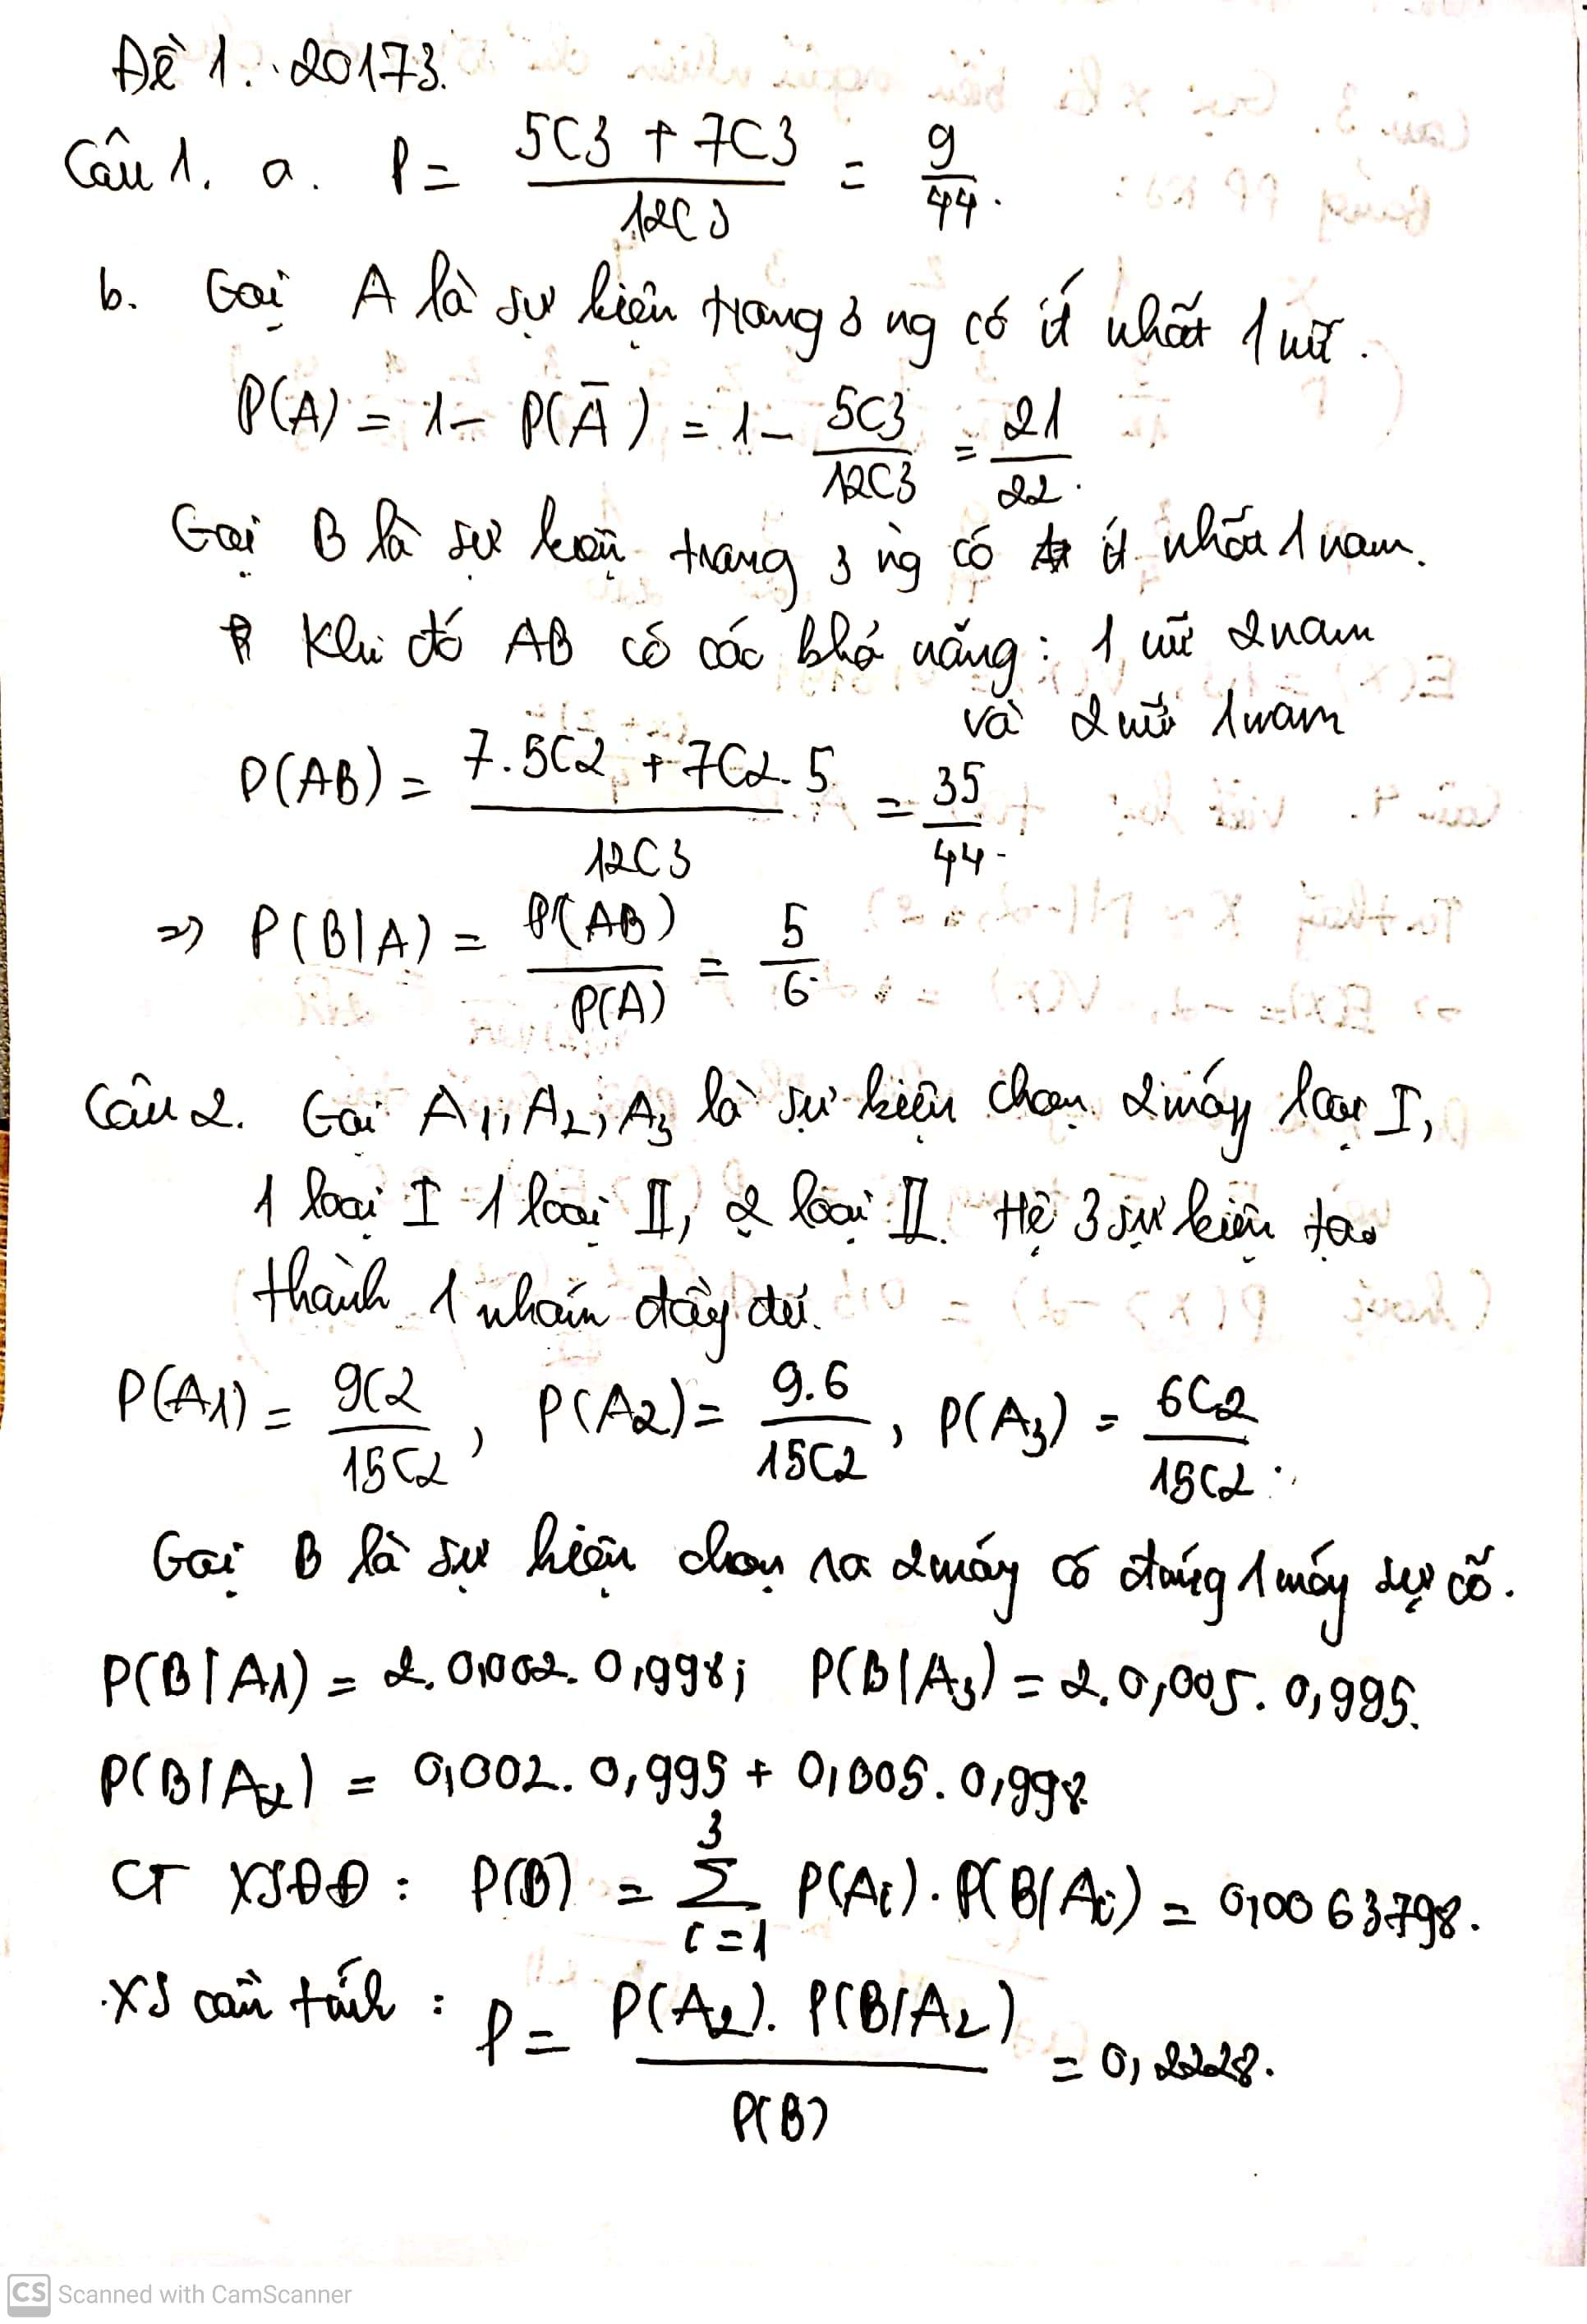 Đề 1. 20173.
Câu 1. a. P = (5C3 + 7C3) / 12C3 = 9/44.
b. Gọi A là sự kiện trong 3 ng có ít nhất 1 nữ.
P(A) = 1 - P(Ā) = 1 - 5C3/12C3 = 21/22.
Gọi B là sự kiện trong 3 ng có ít nhất 1 nam.
Khi đó AB có các khả năng: 1 nữ 2 nam
và 2 nữ 1 nam
P(AB) = (7.5C2 + 7C2.5) / 12C3 = 35/44.
=> P(B|A) = P(AB)/P(A) = 5/6
Câu 2. Gọi A1; A2; A3 là sự kiện chọn 2 máy loại I,
1 loại I 1 loại II, 2 loại II. Hệ 3 sự kiện tạo
thành 1 nhóm đầy đủ.
P(A1) = 9C2/15C2, P(A2) = 9.6/15C2, P(A3) = 6C2/15C2.
Gọi B là sự kiện chọn ra 2 máy có đúng 1 máy sự cố.
P(B|A1) = 2.0,002.0,998; P(B|A3) = 2.0,005.0,995.
P(B|A2) = 0,002.0,995 + 0,005.0,998.
CT XSĐĐ: P(B) = Σ_{i=1}^{3} P(Ai).P(B|Ai) = 0,0063798.
XS cần tính: P = P(A2).P(B|A2) / P(B) = 0,2228.
CS Scanned with CamScanner